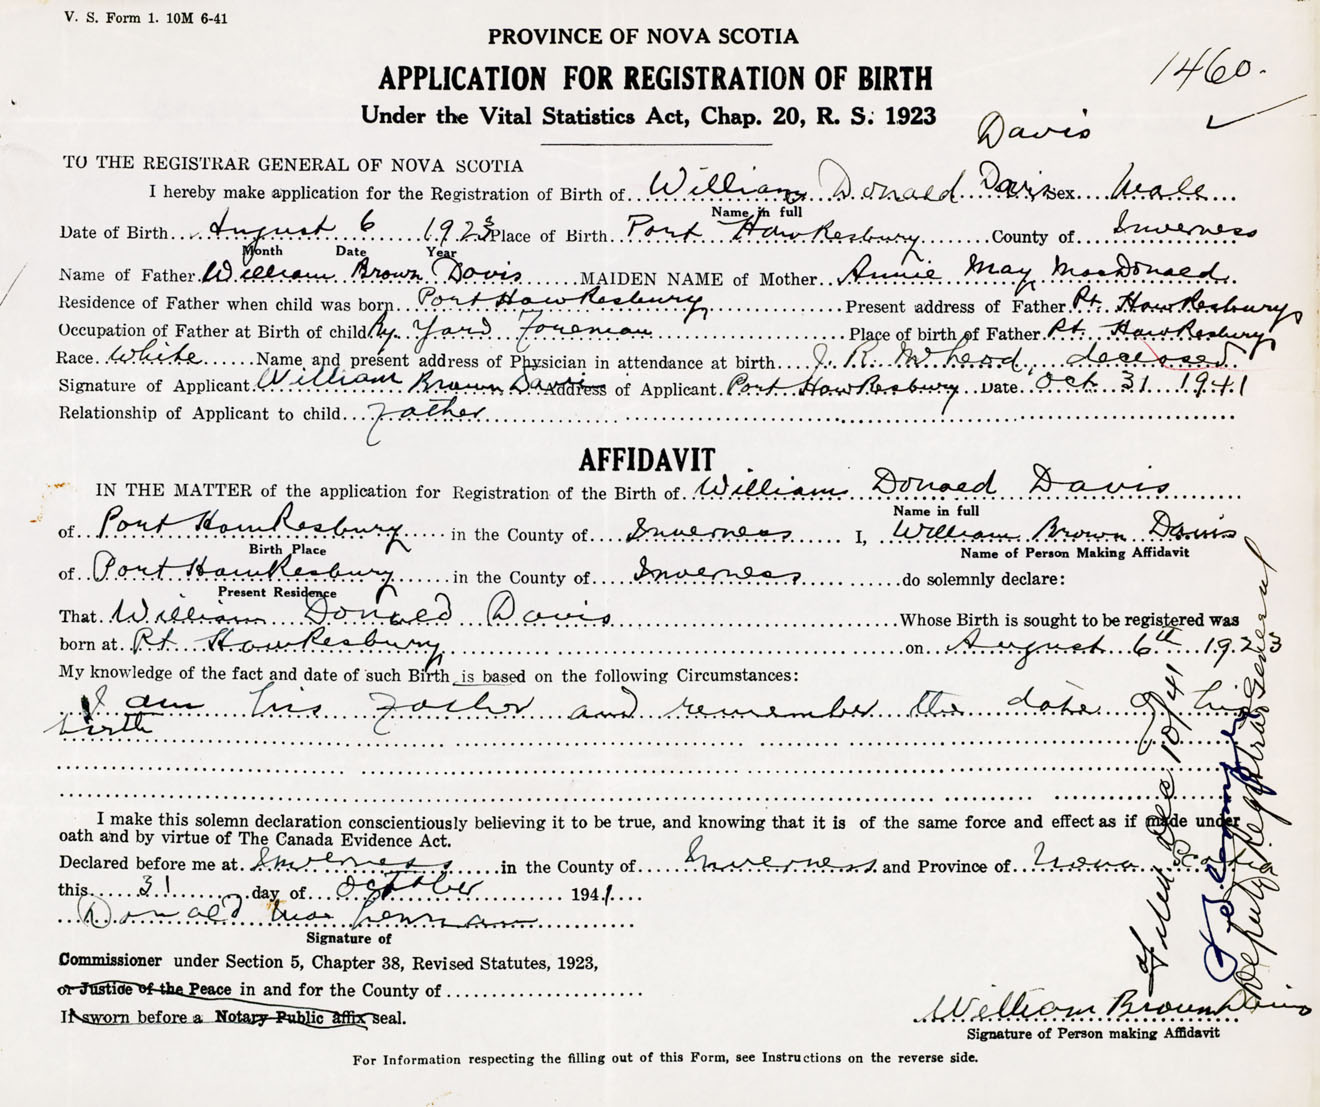 V. S. Form 1. 10M 6-41
PROVINCE OF NOVA SCOTIA
1460.
APPLICATION FOR REGISTRATION OF BIRTH
Under the Vital Statistics Act, Chap. 20, R. S. 1923
Davis
TO THE REGISTRAR GENERAL OF NOVA SCOTIA
I hereby make application for the Registration of Birth of William Donald Davis Sex Male
Name in full
Date of Birth August 6 1923 Place of Birth Port Hawkesbury County of Inverness
Month Date Year
Name of Father William Brown Davis MAIDEN NAME of Mother Annie May MacDonald
Residence of Father when child was born Port Hawkesbury Present address of Father Pt. Hawkesbury
Occupation of Father at Birth of child Ry. Yard Foreman Place of birth of Father Pt. Hawkesbury
Race White Name and present address of Physician in attendance at birth J. R. deceased
Signature of Applicant William Brown Davis Address of Applicant Port Hawkesbury Date Oct 31 1941
Relationship of Applicant to child Father
AFFIDAVIT
IN THE MATTER of the application for Registration of the Birth of William Donald Davis
Name in full
of Port Hawkesbury in the County of Inverness I, William Brown Davis
Birth Place Name of Person Making Affidavit
of Port Hawkesbury in the County of Inverness do solemnly declare:
Present Residence
That William Donald Davis Whose Birth is sought to be registered was
born at Pt. Hawkesbury on August 6th 1923
My knowledge of the fact and date of such Birth is based on the following Circumstances:
I am his Father and remember the date of his
birth
I make this solemn declaration conscientiously believing it to be true, and knowing that it is of the same force and effect as if made under
oath and by virtue of The Canada Evidence Act.
Declared before me at Inverness in the County of Inverness and Province of Nova Scotia
this 31 day of October 1941
Donald
Signature of
Commissioner under Section 5, Chapter 38, Revised Statutes, 1923,
or Justice of the Peace in and for the County of
If sworn before a Notary Public affix seal.
William Brown Davis
Signature of Person making Affidavit
For Information respecting the filling out of this Form, see Instructions on the reverse side.
Filed Dec 10/41
Deputy Registrar General